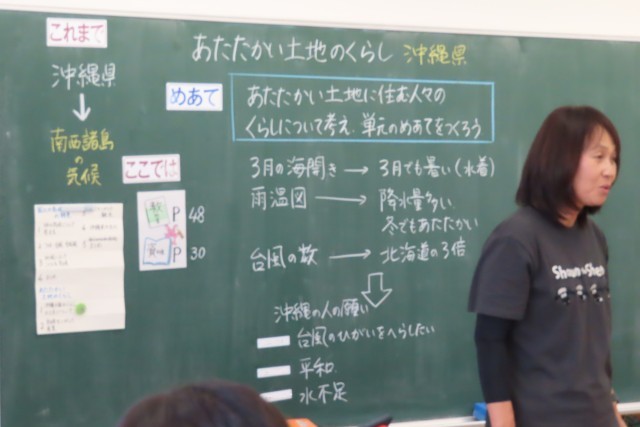 これまで
沖縄県
南西諸島
の
気候
あたたかい土地のくらし 沖縄県
めあて
あたたかい土地に住む人々の
くらしについて考え、単元のめあてをつくろう
ここでは
P 48
P 30
3月の海開き → 3月でも暑い(水着)
雨温図 → 降水量多い
冬でもあたたかい
台風の数 → 北海道の3倍
沖縄の人の願い
台風のひがいをへらしたい
平和
水不足